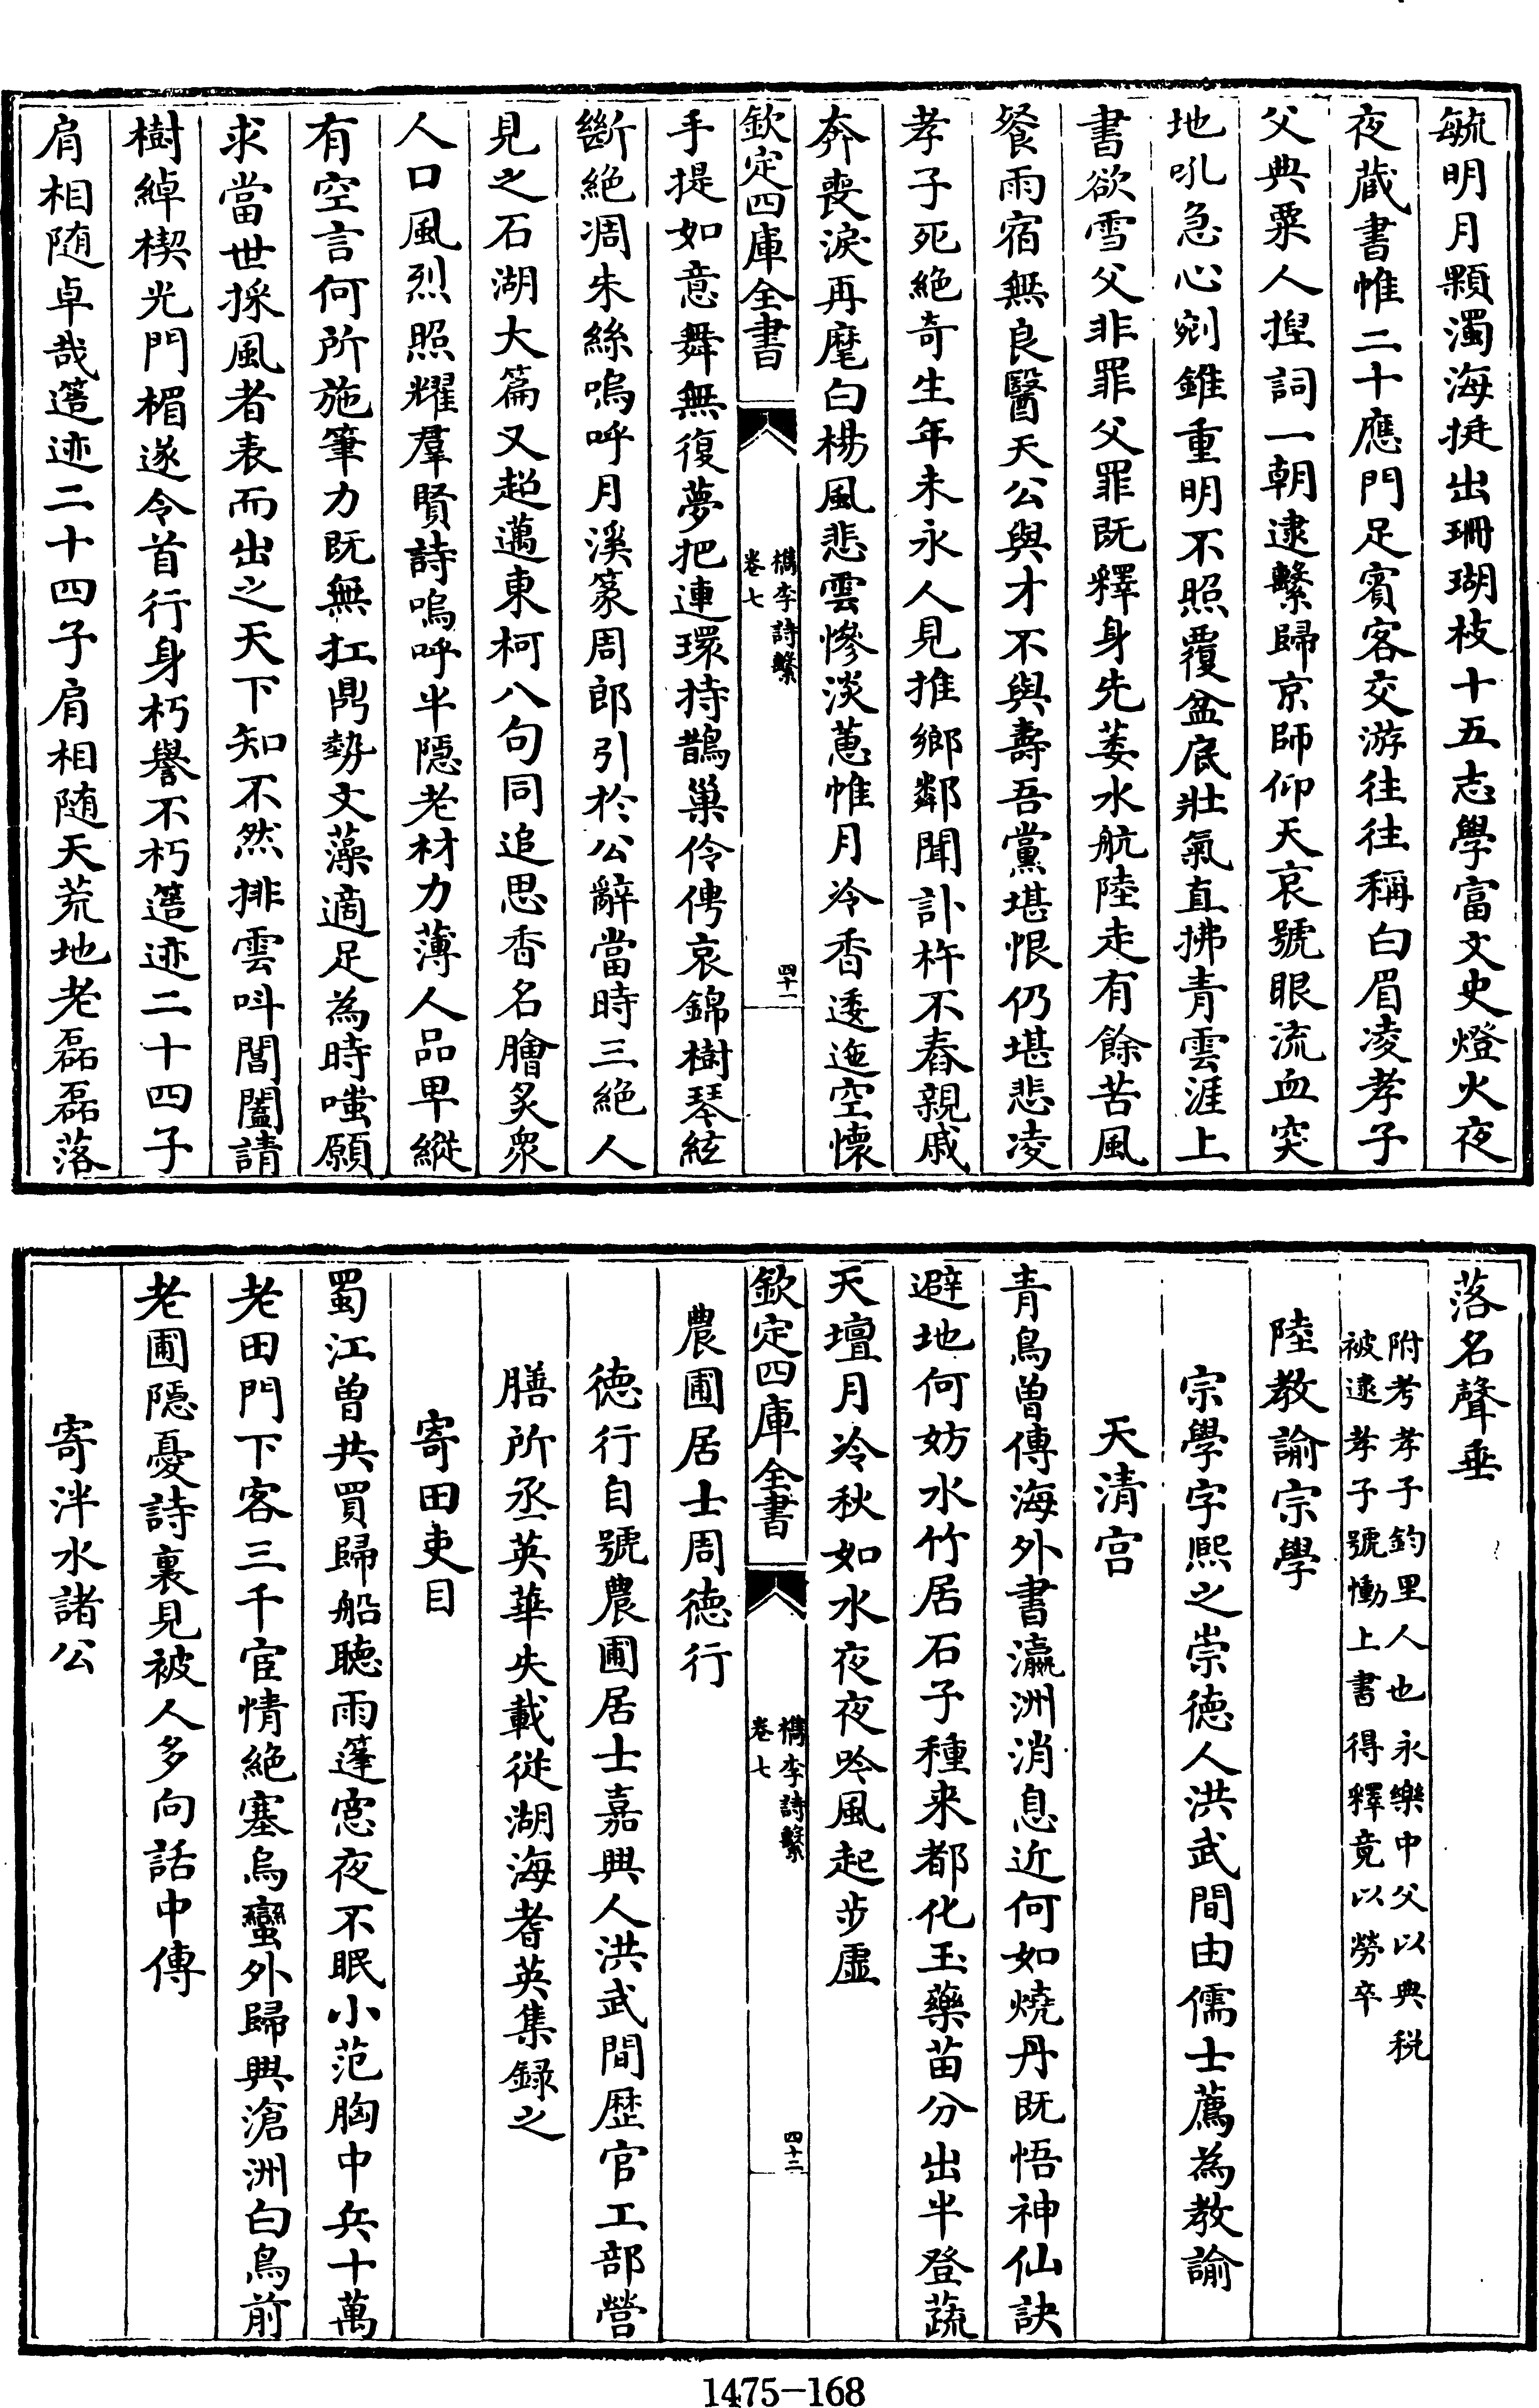 毓明月顆濁海挺出珊瑚枝十五志學富文史燈火夜
夜蔵書惟二十應門足賓客交游往往稱白眉凌孝子
父典粟人揑詞一朝逮繫歸京師仰天哀號眼流血突
地吼急心剜錐重明不照覆盆底壯氣直拂青雲涯上
書欲雪父非罪父罪既釋身先萎水航陸走有餘苦風
餐雨宿無良醫天公與才不與壽吾黨堪恨仍堪悲凌
孝子死絶奇生年未永人見推鄉鄰聞訃杵不舂親戚
奔喪淚再麾白楊風悲雲慘淡蕙帷月冷香逶迤空懷
欽定四庫全書
檇李詩繫
卷七
四十一
手提如意舞無復夢把連環持鵲巢伶俜哀錦樹琴絃
斷絶凋朱絲嗚呼月溪篆周郎引於公辭當時三絶人
見之石湖大篇又超邁東柯八句同追思香名膾炙衆
人口風烈照耀羣賢詩嗚呼半隱老材力薄人品卑縱
有空言何所施筆力既無扛鼎勢文藻適足為時嗤願
求當世採風者表而出之天下知不然排雲呌閶闔請
樹綽楔光門楣遂令首行身朽譽不朽簉迹二十四子
肩相随卓哉簉迹二十四子肩相随天荒地老磊磊落
落名聲垂
附考孝子鈞里人也永樂中父以典税
被逮孝子號慟上書得釋竟以勞卒
陸教諭宗學
宗學字熙之崇德人洪武間由儒士薦為教諭
天清宫
青鳥曽傳海外書瀛洲消息近何如燒丹既悟神仙訣
避地何妨水竹居石子種来都化玉藥苗分出半登蔬
天壇月冷秋如水夜夜吟風起步虛
欽定四庫全書
檇李詩繫
卷七
四十二
農圃居士周德行
德行自號農圃居士嘉興人洪武間歴官工部營
膳所丞英華失載從湖海耆英集録之
寄田吏目
蜀江曽共買歸船聽雨篷窓夜不眠小范胸中兵十萬
老田門下客三千宦情絶塞烏蠻外歸興滄洲白鳥前
老圃隱憂詩裏見被人多向話中傳
寄泮水諸公
1475-168